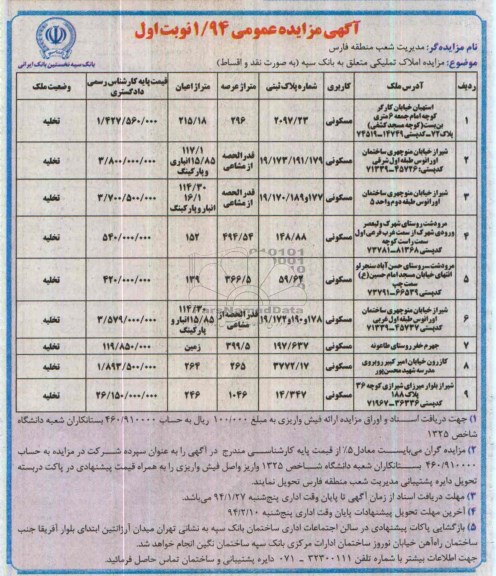 آگهی مزایده عمومی ۱/۹۴ نوبت اول
بانک سپه نخستین بانک ایرانی
نام مزایده‌گر: مدیریت شعب منطقه فارس
موضوع: مزایده املاک تملیکی متعلق به بانک سپه (به صورت نقد و اقساط)
ردیف | آدرس ملک | کاربری | شماره پلاک ثبتی | متراژ عرصه | متراژ اعیان | قیمت پایه کارشناس رسمی دادگستری | وضعیت ملک
۱ | استهبان خیابان کارگر کوچه امام جمعه ۶ متری بن‌بست (کوچه مسجد کشفی) پلاک ۷۲ـ کدپستی ۱۴۷۴۹ـ۷۴۵۱۹ | مسکونی | ۲۰۹۷/۲۳ | ۲۹۶ | ۲۱۵/۱۸ | ۱/۴۲۷/۵۶۰/۰۰۰ | تخلیه
۲ | شیراز خیابان منوچهری ساختمان اورانوس طبقه اول شرقی کدپستی ۴۵۷۲۶ـ۷۱۳۳۹ | مسکونی | ۱۹/۱۷۳/۱۹۱/۱۷۹ | قدرالحصه از مشاعی | ۱۱۷/۱ ۱۵/۸۵ انباری و پارکینگ | ۳/۸۰۰/۰۰۰/۰۰۰ | تخلیه
۳ | شیراز خیابان منوچهری ساختمان اورانوس طبقه دوم واحد ۵ | مسکونی | ۱۷۷و۱۹/۱۷۰/۱۸۹ | قدرالحصه از مشاعی | ۱۱۴/۳۰ ۱۶/۱ انبار و پارکینگ | ۳/۷۰۰/۵۰۰/۰۰۰ | تخلیه
۴ | مرودشت روستای شهرک ولیعصر ورودی شهرک از سمت غرب فرعی اول سمت راست کوچه کدپستی ۸۱۳۶۸ـ۷۳۷۸۱ | مسکونی | ۱۴۸/۸۸ | ۴۹۴/۵۴ | ۱۵۲ | ۵۴۰/۰۰۰/۰۰۰ | تخلیه
۵ | مرودشت ـ روستای حسن آباد سنجرلو انتهای خیابان مسجد امام حسین (ع) سمت چپ کدپستی ۶۶۵۳۹ـ۷۳۷۹۱ | مسکونی | ۵۹/۶۲ | ۳۶۶/۵ | ۱۳۹ | ۴۲۰/۰۰۰/۰۰۰ | تخلیه
۶ | شیراز خیابان منوچهری ساختمان اورانوس طبقه اول غربی کدپستی ۴۵۷۳۷ـ۷۱۳۳۹ | مسکونی | ۱۷۸و۱۹۰و۱۹/۱۷۲ | قدرالحصه از مشاعی | ۱۱۴/۳۰ ۱۵/۸۵ انبار و پارکینگ | ۳/۵۷۹/۰۰۰/۰۰۰ | تخلیه
۷ | جهرم خفر روستای طاغونه | مسکونی | ۱۹۷/۶۳۷ | ۳۹۹/۵ | زمین | ۱۱۹/۸۵۰/۰۰۰ | تخلیه
۸ | کازرون خیابان امیرکبیر روبروی مدرسه شهید محسن‌پور | مسکونی | ۳۷۷۲/۱۷ | ۲۶۵ | ۲۶۴ | ۱/۸۹۳/۵۰۰/۰۰۰ | تخلیه
۹ | شیراز بلوار میرزای شیرازی کوچه ۳۶ پلاک ۱۸۸ کدپستی ۳۶۳۳۶ـ۷۱۹۶۷ | مسکونی | ۱۴/۳۴۷ | ۱۰۴۶ | ۲۴۶ | ۲۶/۱۵۰/۰۰۰/۰۰۰ | تخلیه
۱) جهت دریافت اسناد و اوراق مزایده ارائه فیش واریزی به مبلغ ۱۰۰/۰۰۰ ریال به حساب ۴۶۰/۹۱۰۰۰۰ بستانکاران شعبه دانشگاه
شاخص ۱۳۲۵
۲) مزایده گران می‌بایست معادل ۵٪ از قیمت پایه کارشناسی مندرج در آگهی را به عنوان سپرده شرکت در مزایده به حساب
۴۶۰/۹۱۰۰۰۰ بستانکاران شعبه دانشگاه شاخص ۱۳۲۵ واریز واصل فیش واریزی را به همراه قیمت پیشنهادی در پاکت دربسته
تحویل دایره پشتیبانی مدیریت شعب منطقه فارس تحویل نمایند.
۳) مهلت دریافت اسناد از زمان آگهی تا پایان وقت اداری پنج‌شنبه ۹۴/۱/۲۷ می‌باشد.
۴) آخرین مهلت تحویل پیشنهادات پایان وقت اداری پنج‌شنبه ۹۴/۲/۱۰
۵) بازگشایی پاکات پیشنهادی در سالن اجتماعات اداری ساختمان بانک سپه به نشانی تهران میدان آرژانتین ابتدای بلوار آفریقا جنب
ساختمان راه‌آهن خیابان نوروز ساختمان ادارات مرکزی بانک سپه ساختمان نگین انجام خواهد شد.
جهت اطلاعات بیشتر با شماره تلفن ۳۲۳۰۰۱۱۱ ـ ۰۷۱ دایره پشتیبانی و ساختمان تماس حاصل فرمائید.